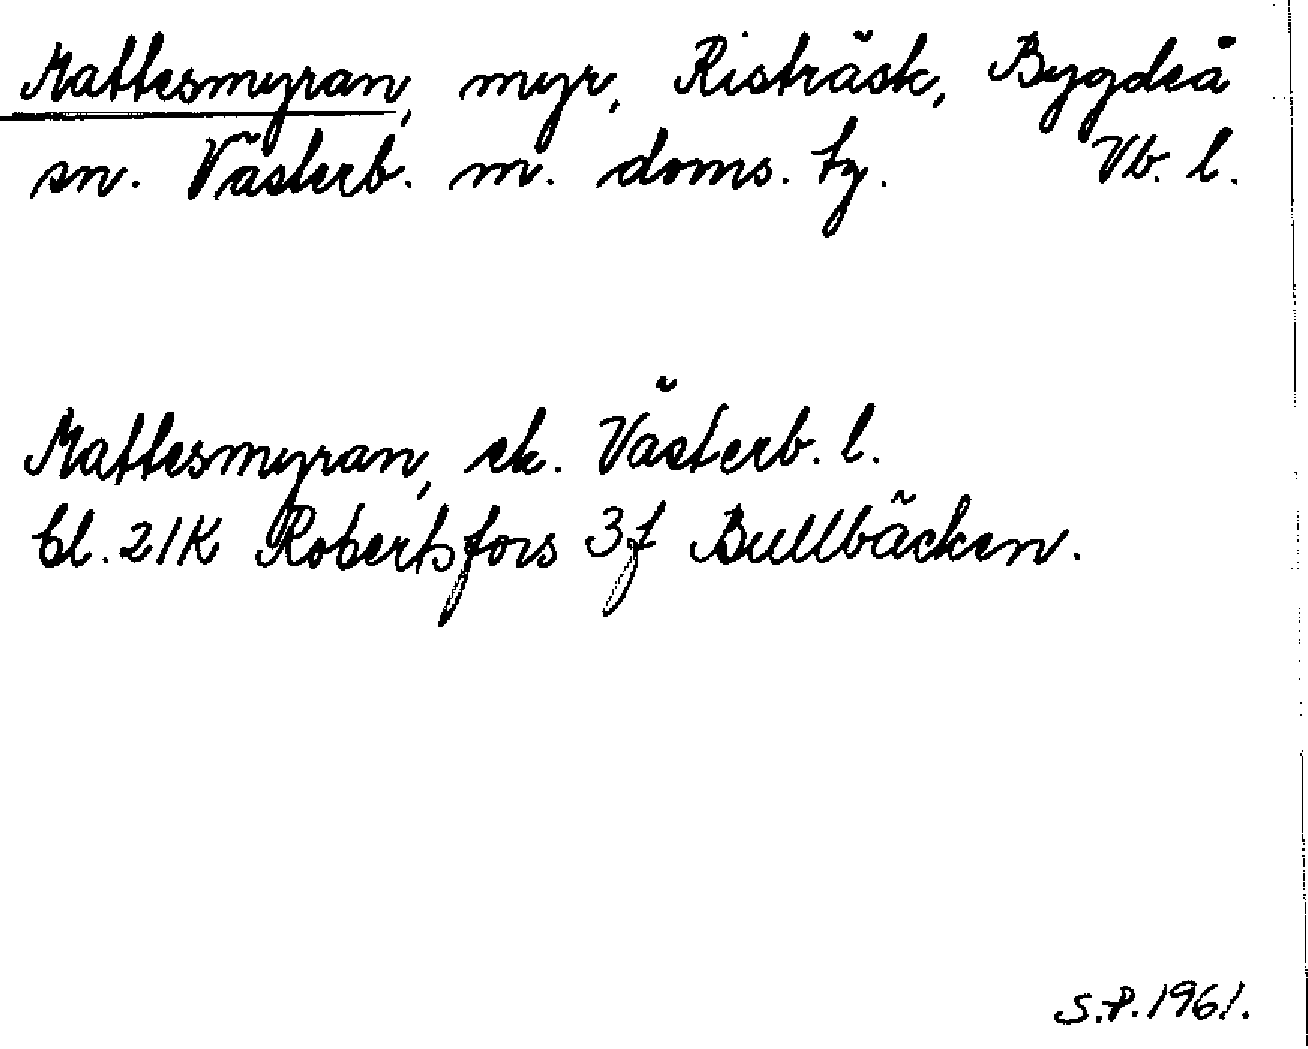 Mattesmyran, myr, Risträsk, Bygdeå
sn. Västerb. m. doms. tg. Vb. l.
Mattesmyran, ek. Västerb. l.
bl. 21K Robertsfors 3f Bullbäcken.
S.P. 1961.